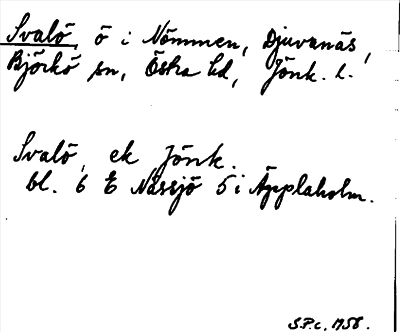 Svalö, ö i Nömmen, Djuvanäs,
Björkö sn, Östra hd, Jönk. l.
Svalö, ek Jönk.
bl. 6 E Nässjö 5 i Äpplaholm.
S.P.c. 1958.